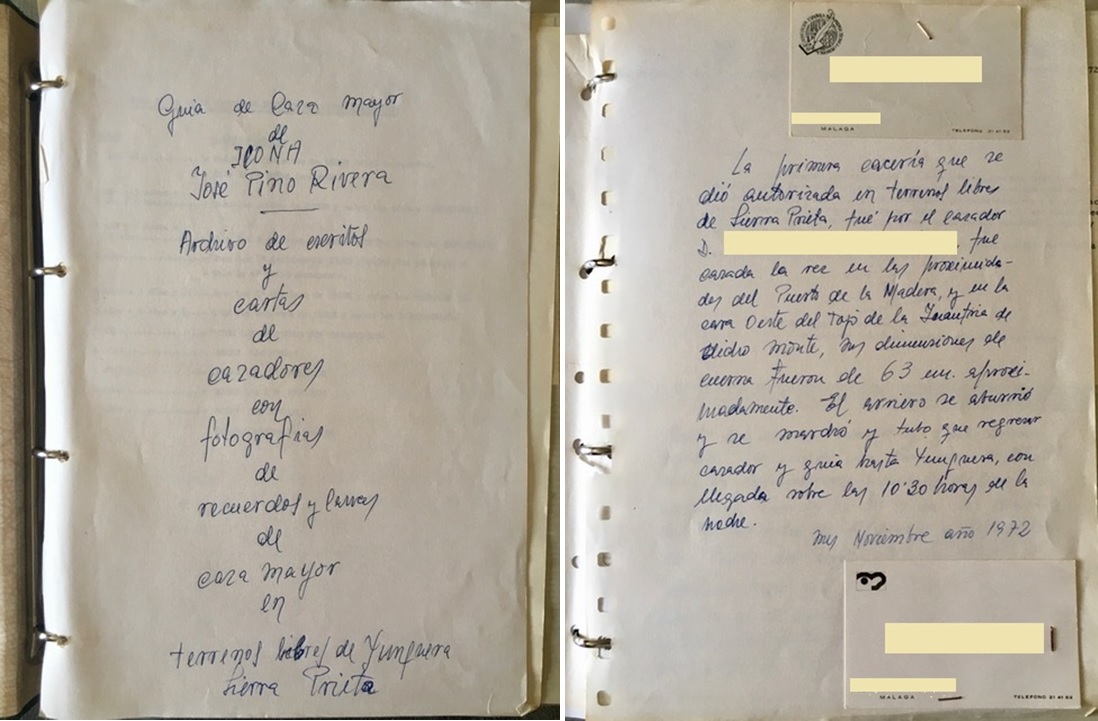 Guia de Caza mayor
de
ICONA
José Pino Rivera
Archivo de escritos
y
cartas
de
cazadores
con
fotografias
de
recuerdos y
de
caza mayor
en
terrenos libres de Yunquera
Sierra Prieta
MALAGA
TELEFONO 21 41 62
La primera cacería que se
dió autorizada en terrenos libres
de Sierra Prieta, fué por el cazador
D. , fue
cazada la rez en las proximida-
des del Puerto de la Madera, y en la
cara Oeste del Tajo de la
dicho monte, sus dimensiones de
cuerna fueron de 63 cm. aproxi-
madamente. El arriero se aburrió
y se marchó y tubo que regresar
cazador y guia hasta Yunquera, con
llegada sobre las 10'30 horas de la
noche.
mes Noviembre año 1972
MALAGA
TELEFONO 21 41 62